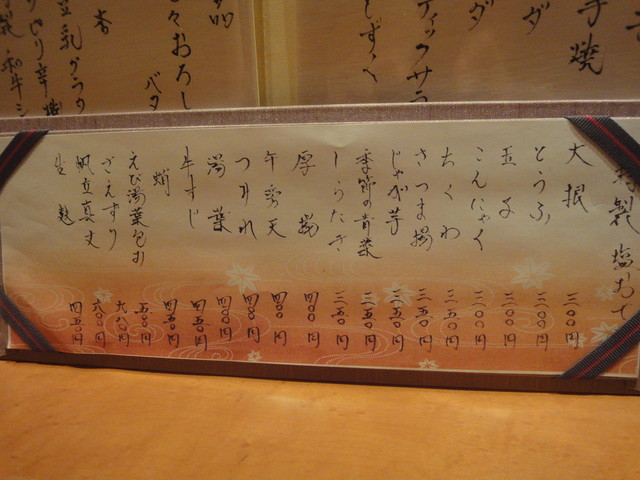 手焼
ダ
ダ
ティックサラ
しずく
品
おろし
バタ
杏
豆乳グラタ
和牛シ
特製 塩おで
大根 二〇〇円
とうふ 二〇〇円
玉子 二〇〇円
こんにゃく 二〇〇円
ちくわ 二五〇円
さつま揚 二五〇円
じゃが芋 二五〇円
季節の青菜 二五〇円
しらたき 二五〇円
厚揚 四〇〇円
牛蒡天 四〇〇円
つみれ 四〇〇円
湯葉 四〇〇円
牛すじ 四五〇円
蛸 四五〇円
えび湯葉包み 五〇〇円
さえずり 九八〇円
帆立真丈 六〇〇円
生麩 四五〇円